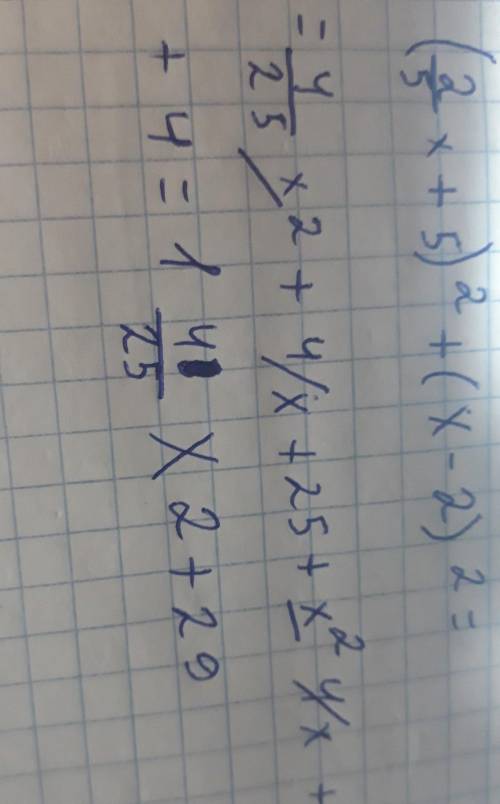 (2/5 x + 5)² + (x - 2)² =
= 4/25 x² + 4x + 25 + x² 4x +
+ 4 = 1 4/25 x² + 29